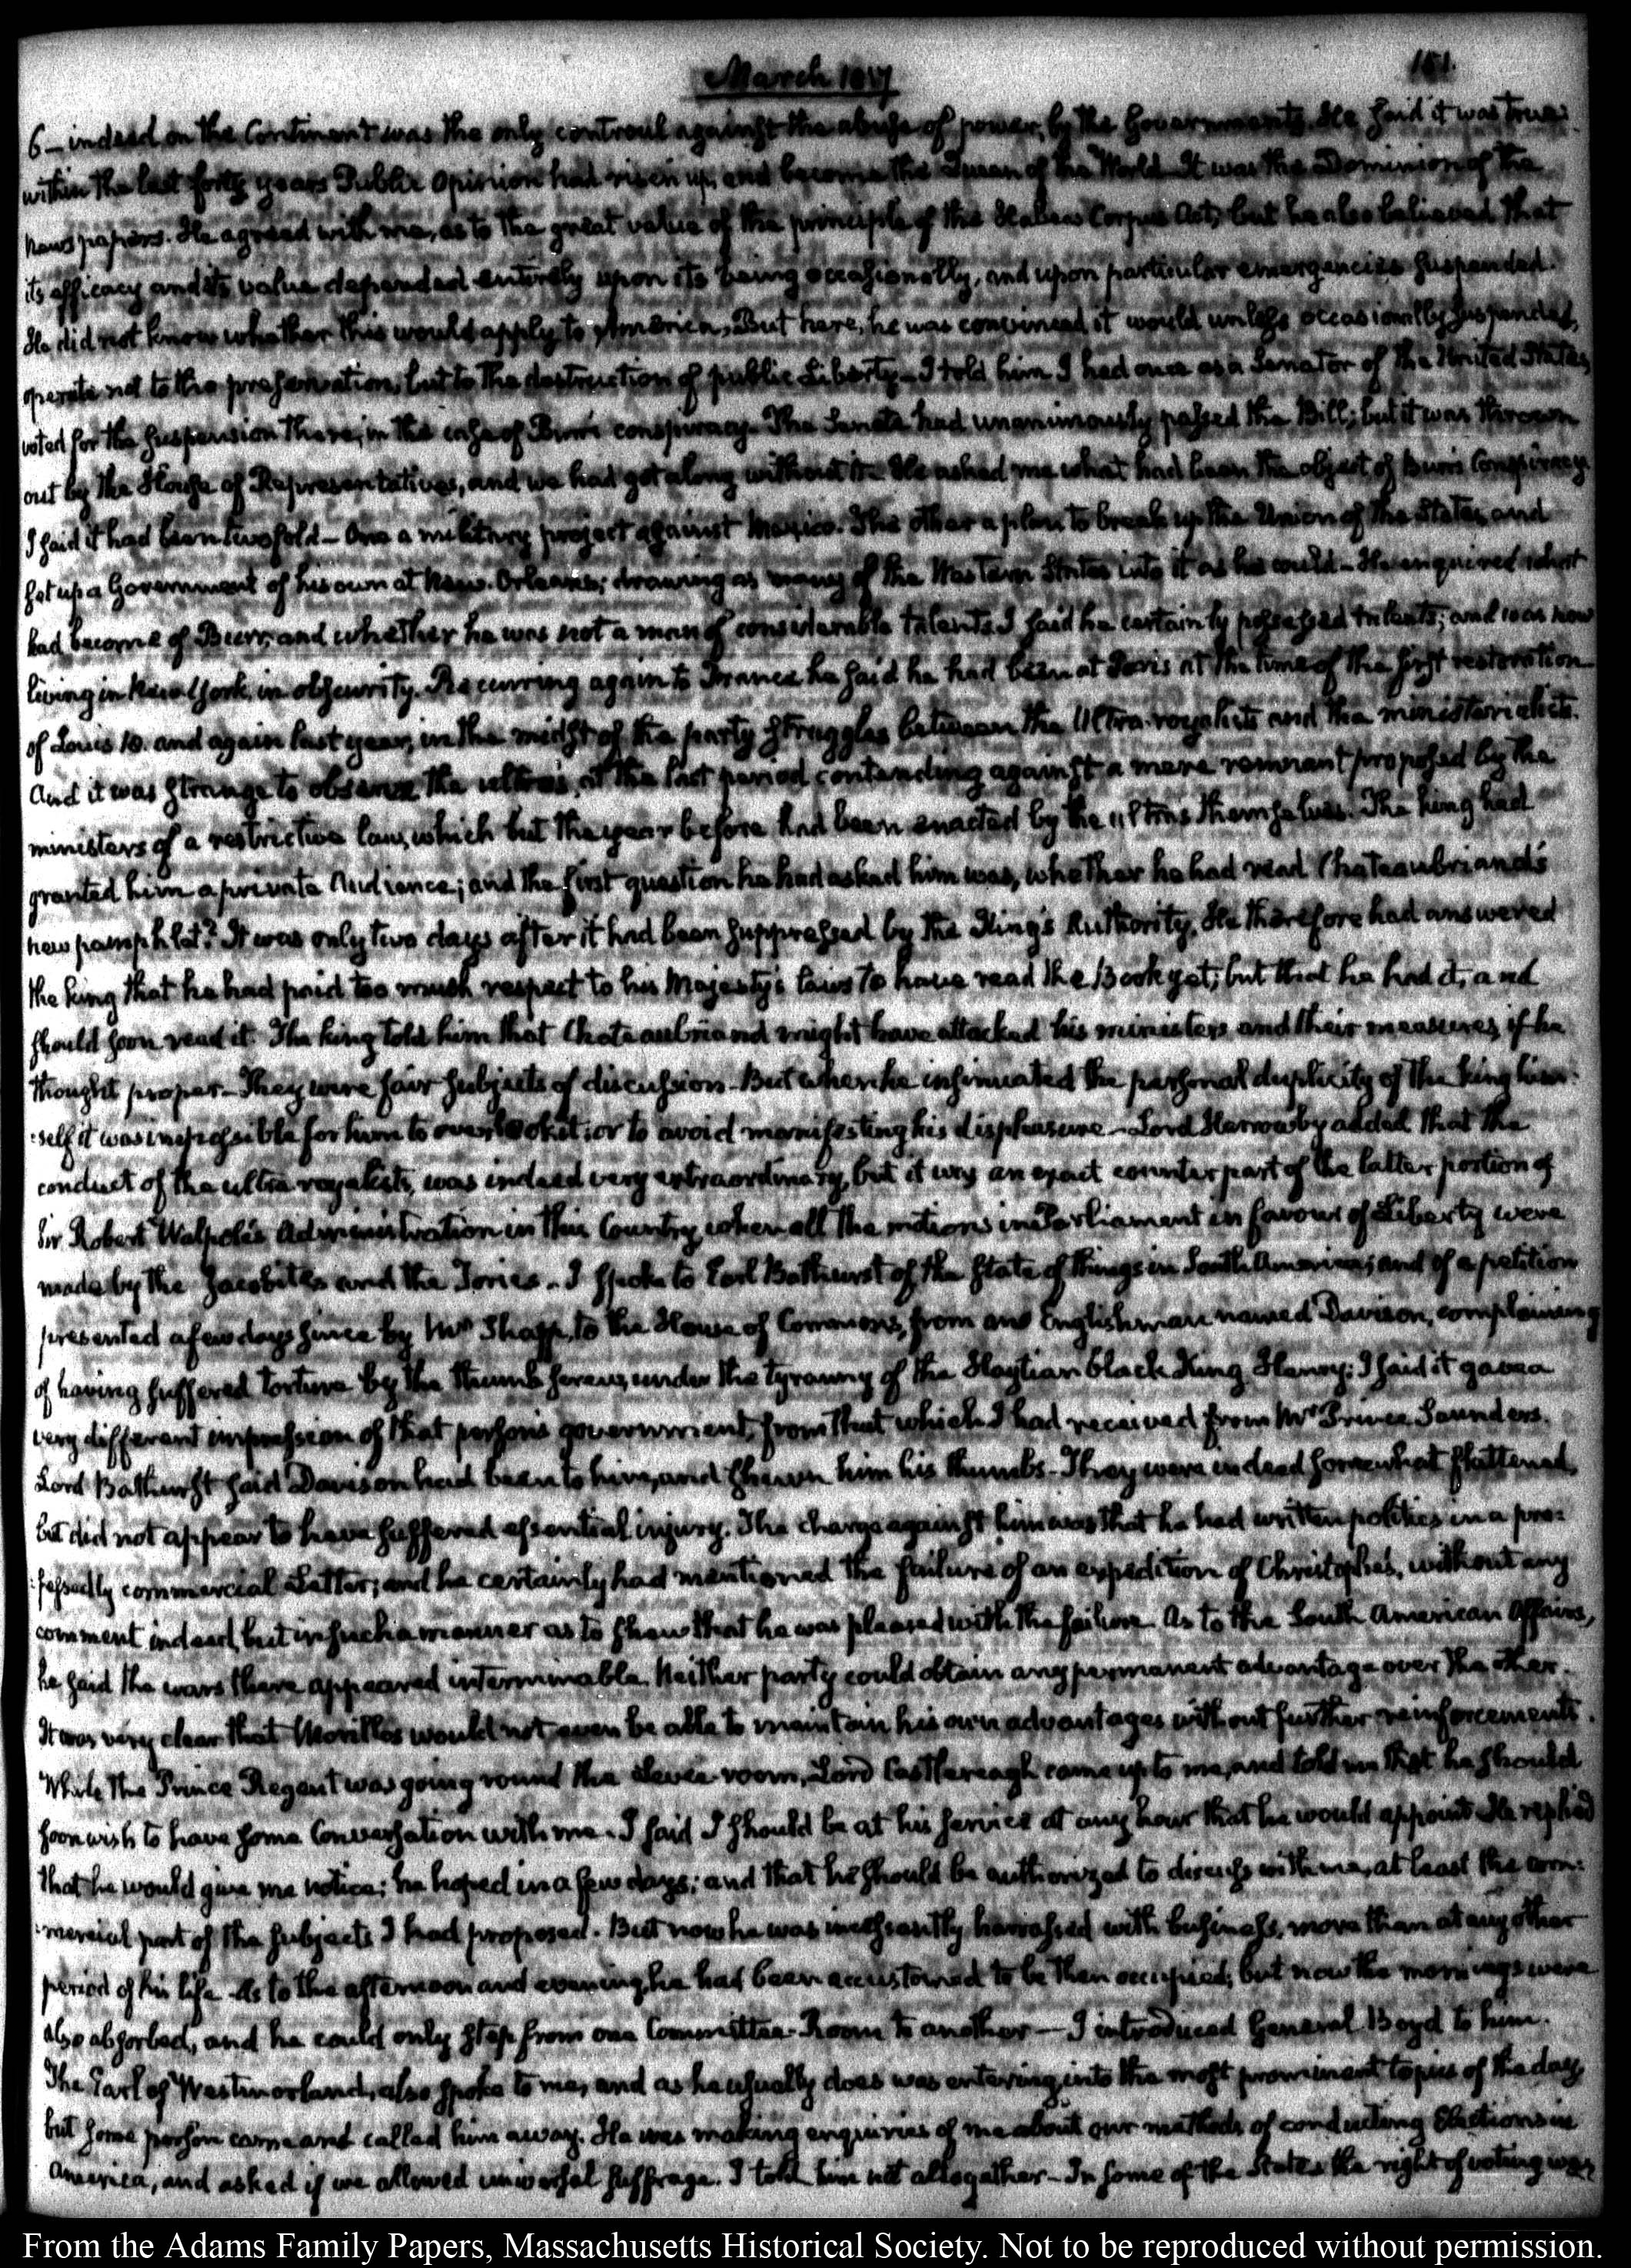 March 1817
151.
6 — indeed on the Continent was the only controul against the abuse of power, by the Governments. He said it was true:
within the last forty years Public opinion had risen up, and become the Queen of the World — It was the Dominion of the
newspapers. He agreed with me, as to the great value of the principle of the Habeas Corpus Act; but he also believed that
its efficacy and its value depended entirely upon its being occasionally, and upon particular emergencies suspended.
He did not know whether this would apply to America, But here, he was convinced it would unless occasionally suspended,
operate not to the preservation, but to the destruction of public Liberty — I told him I had once as a Senator of the United States,
voted for the suspension there, in the case of Burr's conspiracy. The Senate had unanimously passed the Bill; but it was thrown
out by the House of Representatives, and we had got along without it. He asked me what had been the object of Burr's Conspiracy
I said it had been twofold — One a military project against Mexico. The other a plan to break up the Union of the States, and
set up a Government of his own at New-Orleans; drawing as many of the Western States into it as he could — He enquired what
had become of Burr, and whether he was not a man of considerable talents. I said he certainly possessed talents; and was now
living in New York, in obscurity. Recurring again to France he said he had been at Paris at the time of the first restoration
of Louis 18. and again last year, in the midst of the party struggles between the Ultra-royalists and the ministerialists.
And it was strange to observe the ultras, at the last period contending against a mere remnant proposed by the
ministers of a restrictive law, which but the year before had been enacted by the ultras themselves. The king had
granted him a private Audience; and the first question he had asked him was, whether he had read Chateaubriand's
new pamphlet? It was only two days after it had been suppressed by the King's Authority. He therefore had answered
the king that he had paid too much respect to his Majesty's laws to have read the Book yet; but that he had it, and
should soon read it. The king told him that Chateaubriand might have attacked his ministers and their measures, if he
thought proper — They were fair subjects of discussion — But when he insinuated the personal duplicity of the king him-
:self it was impossible for him to overlook it; or to avoid manifesting his displeasure — Lord Harrowby added that the
conduct of the ultra royalists, was indeed very extraordinary, but it was an exact counterpart of the latter portion of
Sir Robert Walpole's Administration in this Country, when all the motions in Parliament in favour of Liberty were
made by the Jacobites and the Tories — I spoke to Earl Bathurst of the state of things in South America; and of a petition
presented a few days since by Mr Sharp, to the House of Commons, from an Englishman named Davison, complaining
of having suffered torture by the thumb screws, under the tyranny of the Haytian black King Henry: I said it gave a
very different impression of that person's government, from that which I had received from Mr Prince Saunders.
Lord Bathurst said Davison had been to him, and shewn him his thumbs — They were indeed somewhat flattened,
but did not appear to have suffered essential injury. The charge against him was that he had written politics in a pro:
:fessedly commercial Letter; and he certainly had mentioned the failure of an expedition of Christophe's, without any
comment indeed, but in such a manner as to shew that he was pleased with the failure. As to the South American Affairs,
he said the wars there appeared interminable. Neither party could obtain any permanent advantage over the other.
It was very clear that Morillos would not even be able to maintain his own advantages without further reinforcements.
While the Prince Regent was going round the Levee room, Lord Castlereagh came up to me, and told me that he should
soon wish to have some Conversation with me. I said I should be at his service at any hour that he would appoint. He replied
that he would give me notice; he hoped in a few days; and that he should be authorized to discuss with me, at least the com:
:mercial part of the subjects I had proposed. But now he was incessantly harrassed with business, more than at any other
period of his life — As to the afternoon and evening he had been accustomed to be then occupied; but now the mornings were
also absorbed, and he could only step from one Committee-Room to another — I introduced General Boyd to him.
The Earl of Westmorland, also spoke to me, and as he usually does was entering into the most prominent topics of the day,
but some person came and called him away. He was making enquiries of me about our methods of conducting Elections in
America, and asked if we allowed universal suffrage. I told him not altogether — In some of the States the right of voting was
From the Adams Family Papers, Massachusetts Historical Society. Not to be reproduced without permission.